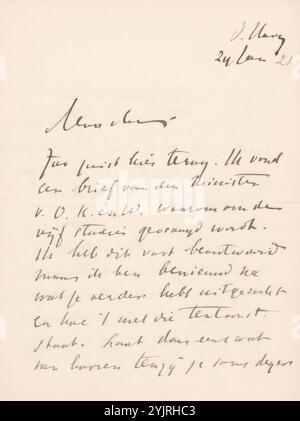 d. Haag
24 Jan 21
Zoo juist hier terug. Ik vond
een brief van den Minister
v. O. K. en W. waarom om de
vijf studies gevraagd wordt.
Ik heb dit vast beantwoord
maar ik ben benieuwd na
wat je verder hebt uitgezocht
en hoe 't met die tentoonst.
staat. Laat dan eens wat
van hooren tenzij je soms dezer
alamy
Image ID: 2YJRHC3
www.alamy.com